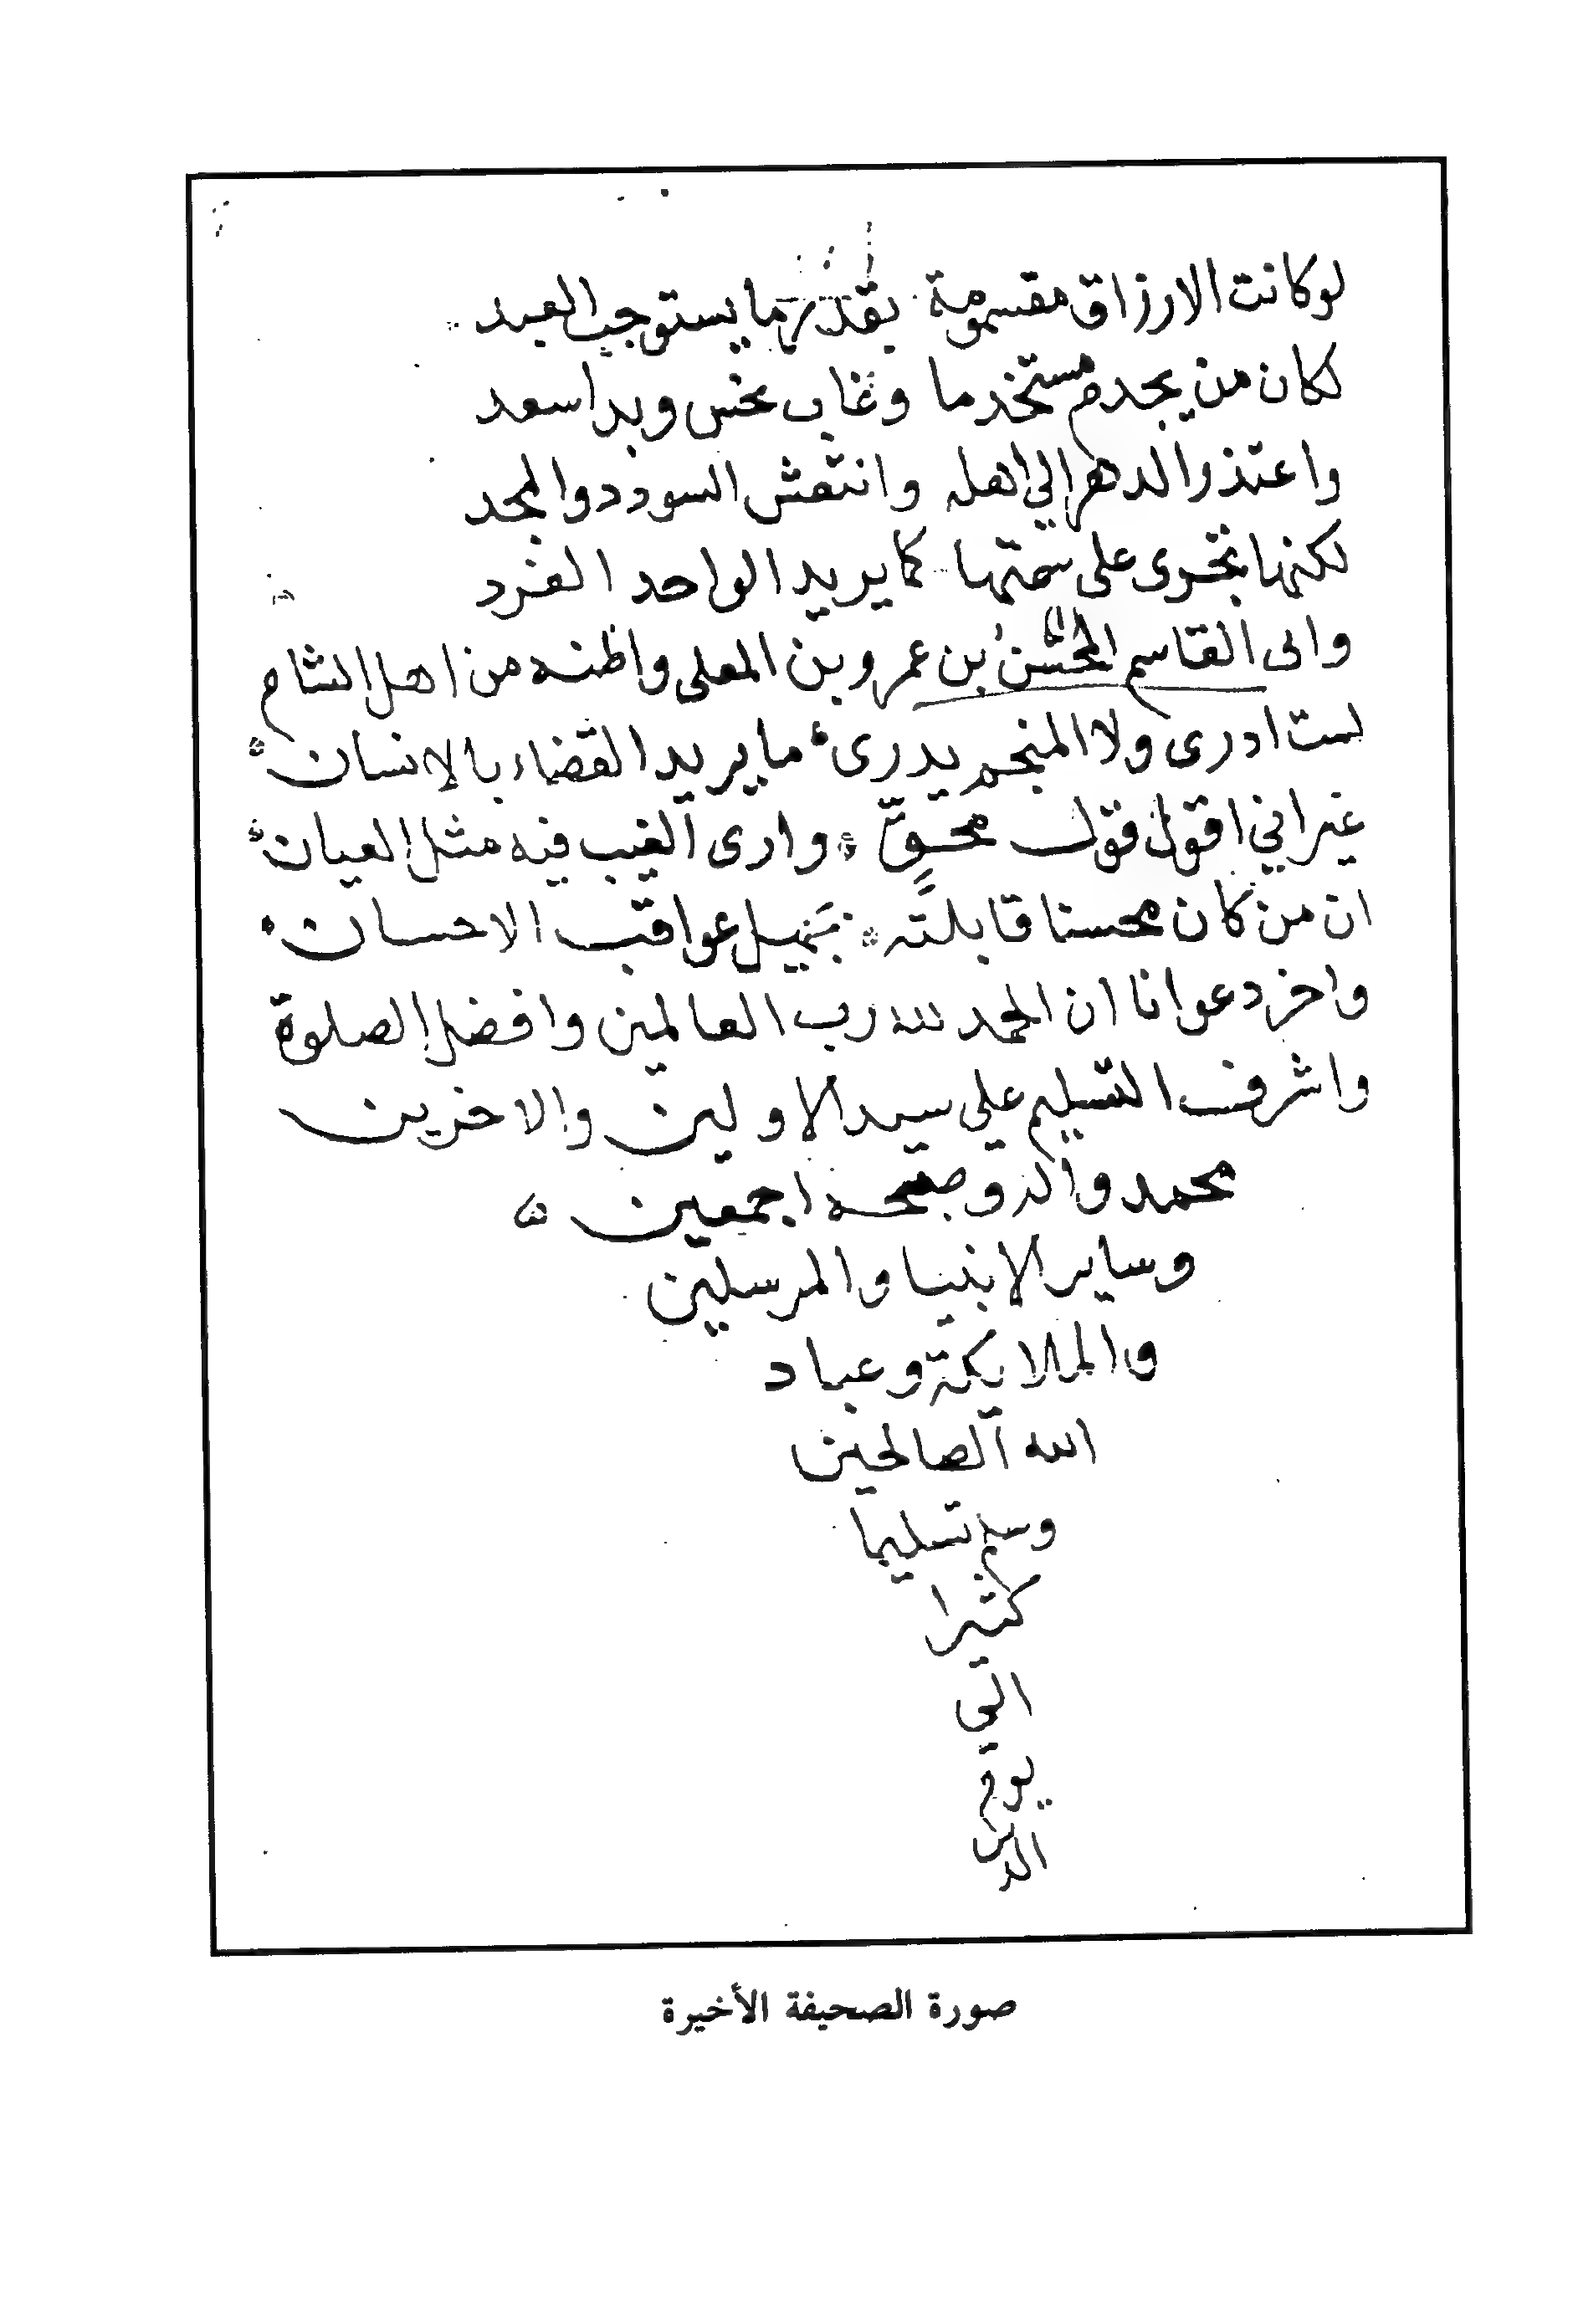 لو كانت الارزاق مقسومة بقدر ما يستوجب العبد
لكان من يخدم مستخدما وغاب نحس وبدا سعد
واعتذر الدهر الي اهله وانتعش السودد والمجد
لكنها تجرى على سمتها كما يريد الواحد الفرد
والى القاسم المحسن بن عمرو بن المعلى واظنه من اهل الشام
لست ادرى ولا المنجم يدرى ما يريد القضاء بالانسان
غير اني اقول قول محقٍّ وارى الغيب فيه مثل العيان
ان من كان محسنا قابلته بجميل عواقب الاحسان
واخر دعوانا ان الحمد لله رب العالمين وافضل الصلوة
واشرف التسليم على سيد الاولين والاخرين
محمد واله وصحبه اجمعين
وساير الانبيا والمرسلين
والملايكة وعباد
الله الصالحين
وسلم تسليما
كثيرا
الي
يوم
الدين
صورة الصحيفة الأخيرة